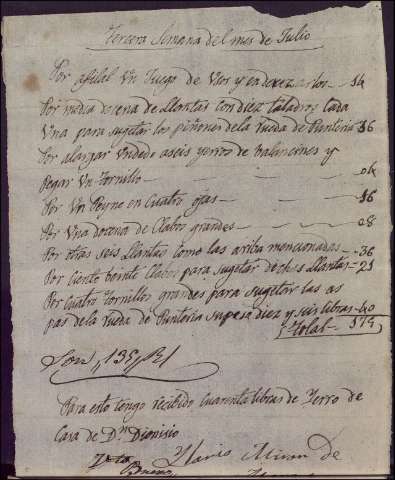 tercera Semana del mes de Julio
Por afilal Un Juego de Uos y endrezarlos - 14
Por media docena de Llantas con diez taladros Cada
Una para sugetar los piñones de la rueda de Puntoria 36
Por alargar Un dedo a seis yerros de balancines y
pegar Un tornillo - 0k
Por Un Peyne en Cuatro ojas - 16
Por Una docena de Clabos grandes - 08
Por otras seis Llantas como las arriba mencionadas - 36
Por Ciento beinte Clabos para sugetar dichas Llantas - 21
Por Cuatro tornillos grandes para sugetar las as
pas de la rueda de Puntoria Su pesa diez y seis libras - 40
total - 175
Son ,, 135 ,, Rl
Para esto tengo recibido Cuarenta libras de Yerro de
Casa de Dn Dionisio
Bueno Ylario de